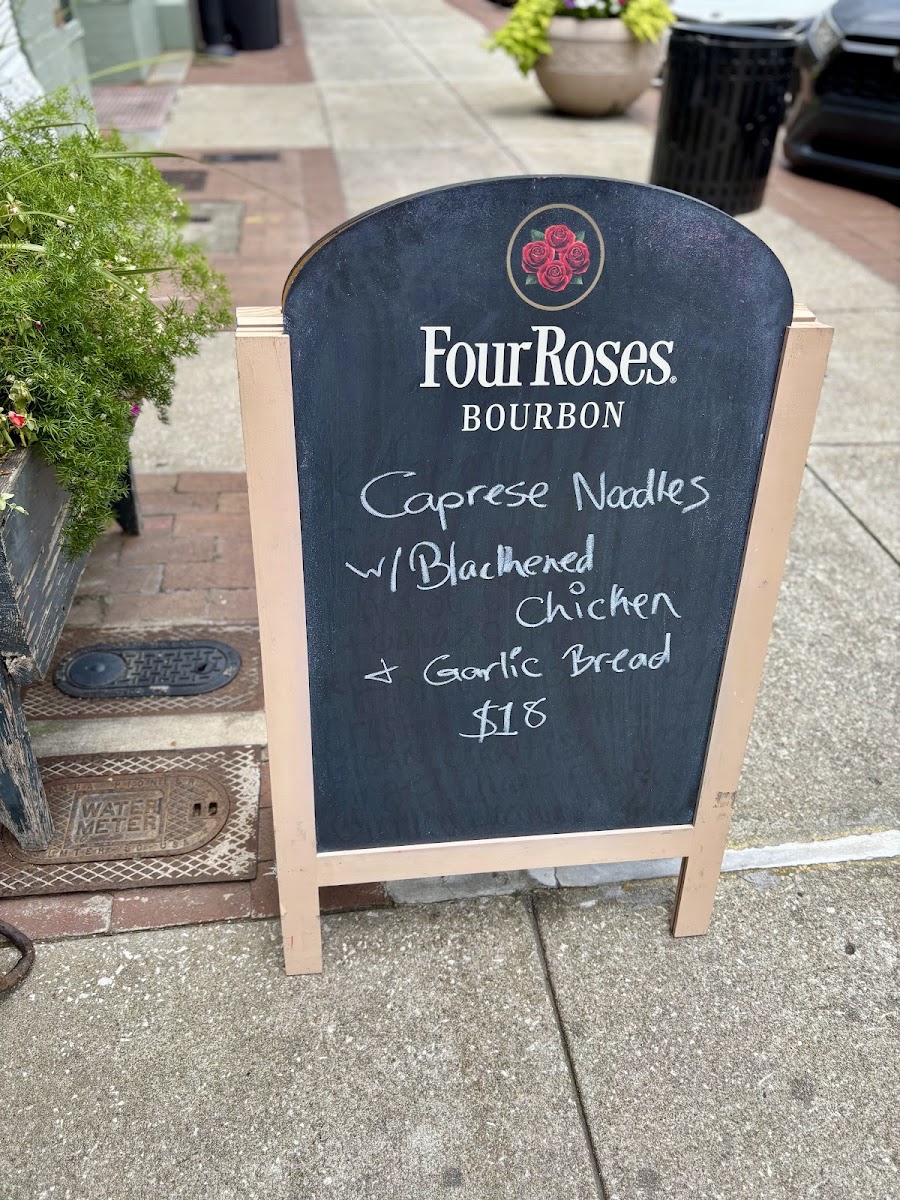 Four Roses®
BOURBON
Caprese Noodles
w/ Blackened
Chicken
+ Garlic Bread
$18
WATER
METER